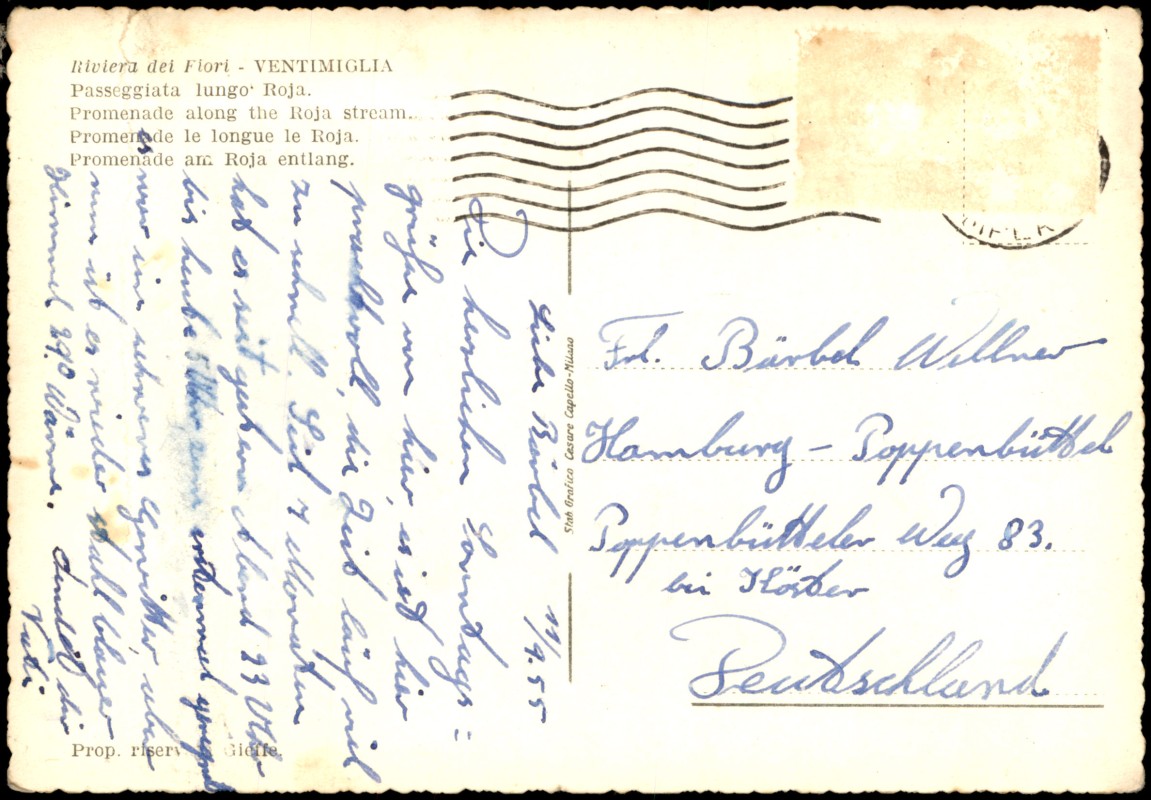 Riviera dei Fiori - VENTIMIGLIA
Passeggiata lungo Roja.
Promenade along the Roja stream.
Promenade le longue le Roja.
Promenade am Roja entlang.
Liebe Bärbel 11/9.55
Die herzlichen Sonntags=
grüße von hier, es ist hier
prachtvoll, die Zeit läuft viel
zu schnell. Seit 7 Monaten
hat es seit gestern Abend 23 Uhr
bis heute 5 Uhr zum erstenmal geregnet
es war ein schweres Gewitter, aber
nun ist es wieder stahlblauer
Himmel 29° Wärme. dir
Vati
Stab Grafico Cesare Capello-Milano
Frl. Bärbel Willner
Hamburg - Poppenbüttel
Poppenbütteler Weg 83.
bei Köster
Deutschland
Prop. riserv Gieffe.